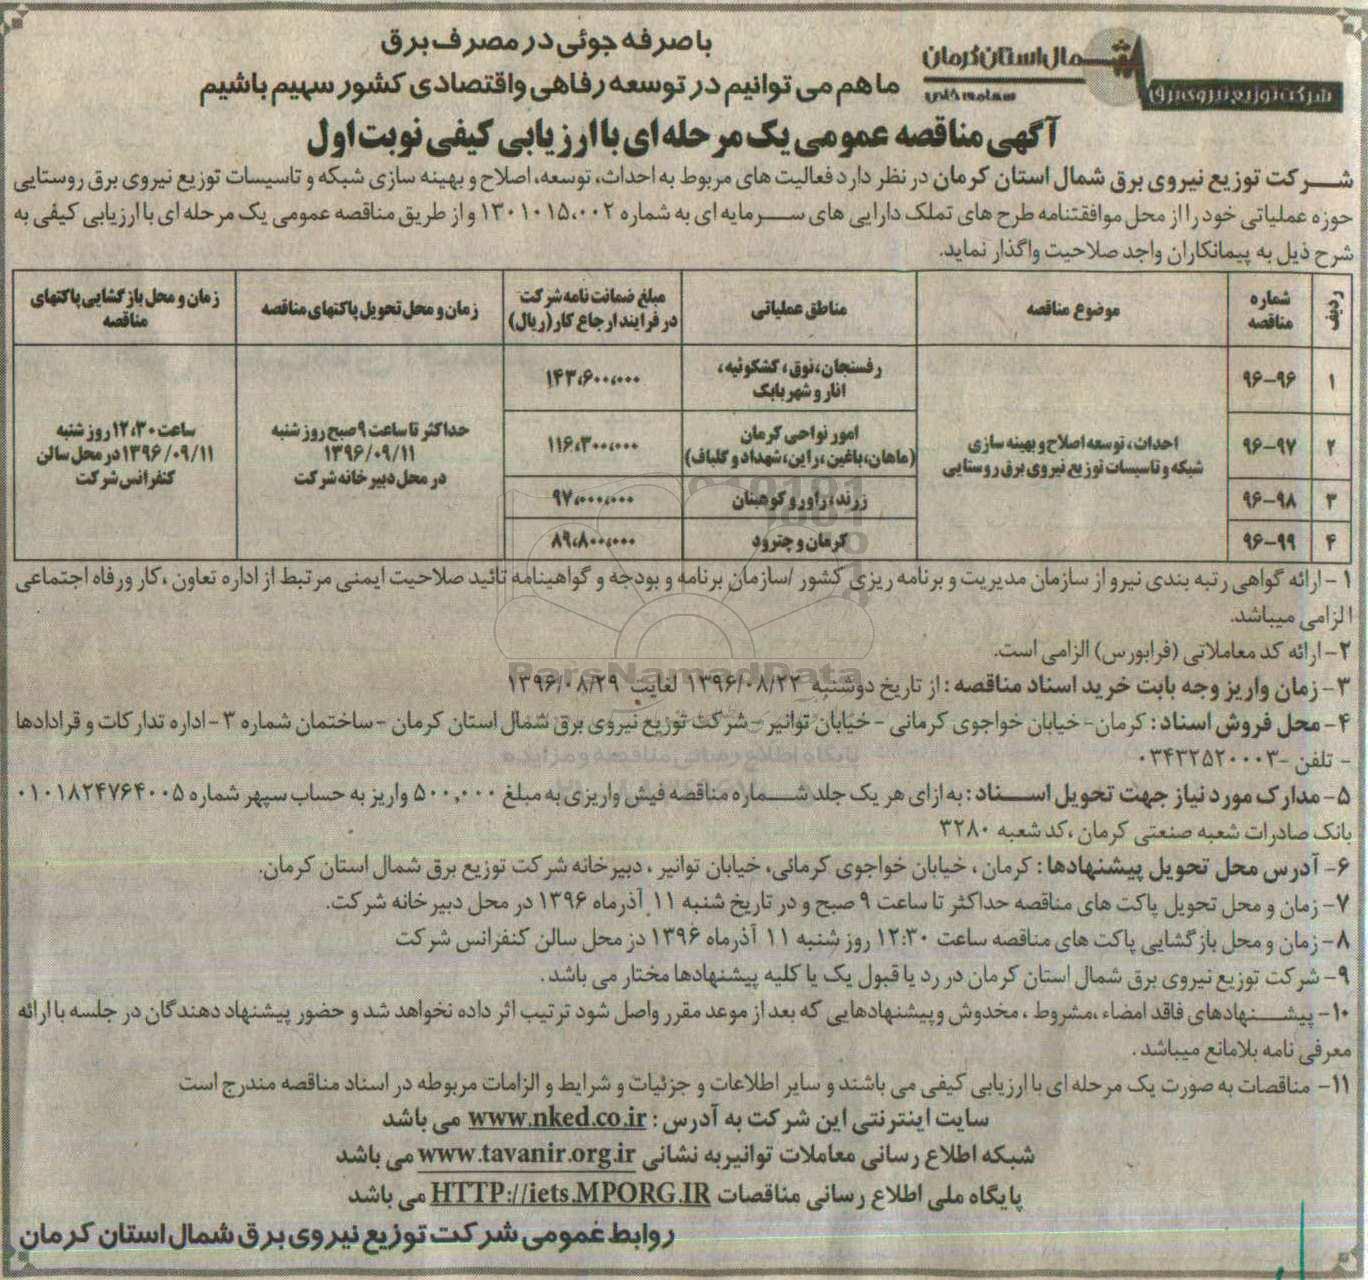 با صرفه جوئی در مصرف برق
ما هم می توانیم در توسعه رفاهی و اقتصادی کشور سهیم باشیم
شمال استان کرمان
سهامی خاص
شرکت توزیع نیروی برق
آگهی مناقصه عمومی یک مرحله ای با ارزیابی کیفی نوبت اول
شرکت توزیع نیروی برق شمال استان کرمان در نظر دارد فعالیت های مربوط به احداث، توسعه، اصلاح و بهینه سازی شبکه و تاسیسات توزیع نیروی برق روستایی
حوزه عملیاتی خود را از محل موافقتنامه طرح های تملک دارایی های سرمایه ای به شماره ۱۳۰۱۰۱۵،۰۰۲ و از طریق مناقصه عمومی یک مرحله ای با ارزیابی کیفی به
شرح ذیل به پیمانکاران واجد صلاحیت واگذار نماید.
ردیف
شماره مناقصه
موضوع مناقصه
مناطق عملیاتی
مبلغ ضمانت نامه شرکت در فرایند ارجاع کار (ریال)
زمان و محل تحویل پاکتهای مناقصه
زمان و محل بازگشایی پاکتهای مناقصه
۱
۹۶-۹۶
احداث، توسعه اصلاح و بهینه سازی
شبکه و تاسیسات توزیع نیروی برق روستایی
رفسنجان، نوق، کشکوئیه،
انار و شهربابک
۱۴۳،۶۰۰،۰۰۰
حداکثر تا ساعت ۹ صبح روز شنبه
۱۳۹۶/۰۹/۱۱
در محل دبیرخانه شرکت
ساعت ۱۲،۳۰ روز شنبه
۱۳۹۶/۰۹/۱۱ در محل سالن
کنفرانس شرکت
۲
۹۶-۹۷
امور نواحی کرمان
(ماهان، باغین، راین، شهداد و گلباف)
۱۱۶،۳۰۰،۰۰۰
۳
۹۶-۹۸
زرند، راور و کوهبنان
۹۷،۰۰۰،۰۰۰
۴
۹۶-۹۹
کرمان و چترود
۸۹،۸۰۰،۰۰۰
۱- ارائه گواهی رتبه بندی نیرو از سازمان مدیریت و برنامه ریزی کشور /سازمان برنامه و بودجه و گواهینامه تائید صلاحیت ایمنی مرتبط از اداره تعاون ،کار ورفاه اجتماعی
الزامی میباشد.
۲- ارائه کد معاملاتی (فرابورس) الزامی است.
۳- زمان واریز وجه بابت خرید اسناد مناقصه : از تاریخ دوشنبه ۱۳۹۶/۰۸/۲۲ لغایت ۱۳۹۶/۰۸/۲۹
۴- محل فروش اسناد : کرمان- خیابان خواجوی کرمانی - خیابان توانیر - شرکت توزیع نیروی برق شمال استان کرمان - ساختمان شماره ۳ - اداره تدارکات و قرادادها
- تلفن -۰۳۴۳۲۵۲۰۰۰۳
۵- مدارک مورد نیاز جهت تحویل اسناد : به ازای هر یک جلد شماره مناقصه فیش واریزی به مبلغ ۵۰۰,۰۰۰ واریز به حساب سپهر شماره ۰۱۰۱۸۲۴۷۶۴۰۰۵
بانک صادرات شعبه صنعتی کرمان ،کد شعبه ۳۲۸۰
۶- آدرس محل تحویل پیشنهادها : کرمان ، خیابان خواجوی کرمانی، خیابان توانیر ، دبیرخانه شرکت توزیع برق شمال استان کرمان.
۷- زمان و محل تحویل پاکت های مناقصه حداکثر تا ساعت ۹ صبح و در تاریخ شنبه ۱۱ آذرماه ۱۳۹۶ در محل دبیرخانه شرکت.
۸- زمان و محل بازگشایی پاکت های مناقصه ساعت ۱۲:۳۰ روز شنبه ۱۱ آذرماه ۱۳۹۶ در محل سالن کنفرانس شرکت
۹- شرکت توزیع نیروی برق شمال استان کرمان در رد یا قبول یک یا کلیه پیشنهادها مختار می باشد .
۱۰- پیشنهادهای فاقد امضاء ،مشروط ، مخدوش وپیشنهادهایی که بعد از موعد مقرر واصل شود ترتیب اثر داده نخواهد شد و حضور پیشنهاد دهندگان در جلسه با ارائه
معرفی نامه بلامانع میباشد .
۱۱- مناقصات به صورت یک مرحله ای با ارزیابی کیفی می باشند و سایر اطلاعات و جزئیات و شرایط و الزامات مربوطه در اسناد مناقصه مندرج است
سایت اینترنتی این شرکت به آدرس : www.nked.co.ir می باشد
شبکه اطلاع رسانی معاملات توانیربه نشانی www.tavanir.org.ir می باشد
پایگاه ملی اطلاع رسانی مناقصات HTTP://iets.MPORG.IR می باشد
روابط عمومی شرکت توزیع نیروی برق شمال استان کرمان
ParsNamadData
پایگاه اطلاع رسانی مناقصه و مزایده